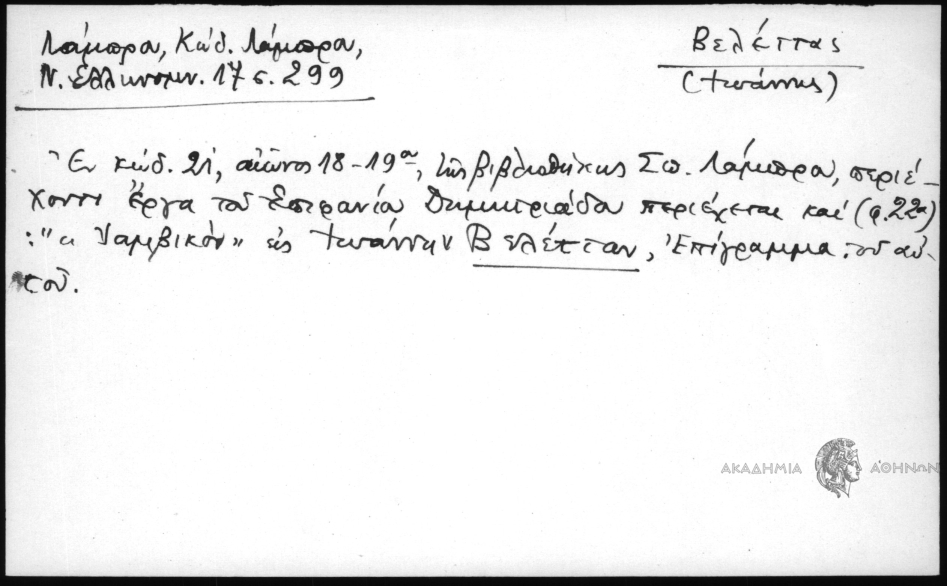 Λάμπρου, Κώδ. Λάμπρου,
Ν. Ελληνομν. 17 σ. 299
Βελέττας
(Ιωάννης)
Ἐν κώδ. 21, αἰῶνος 18-19ου, τῆς βιβλιοθήκης Σπ. Λάμπρου, περιέ-
χοντι Ἔργα τοῦ Στεφανία Δημητριάδου περιέχεται καί (φ. 22α)
: "Ιαμβικόν" εἰς Ιωάννην Βελέτταν, Ἐπίγραμμα τοῦ αὐ-
τοῦ.
ΑΚΑΔΗΜΙΑ ΑΘΗΝΩΝ